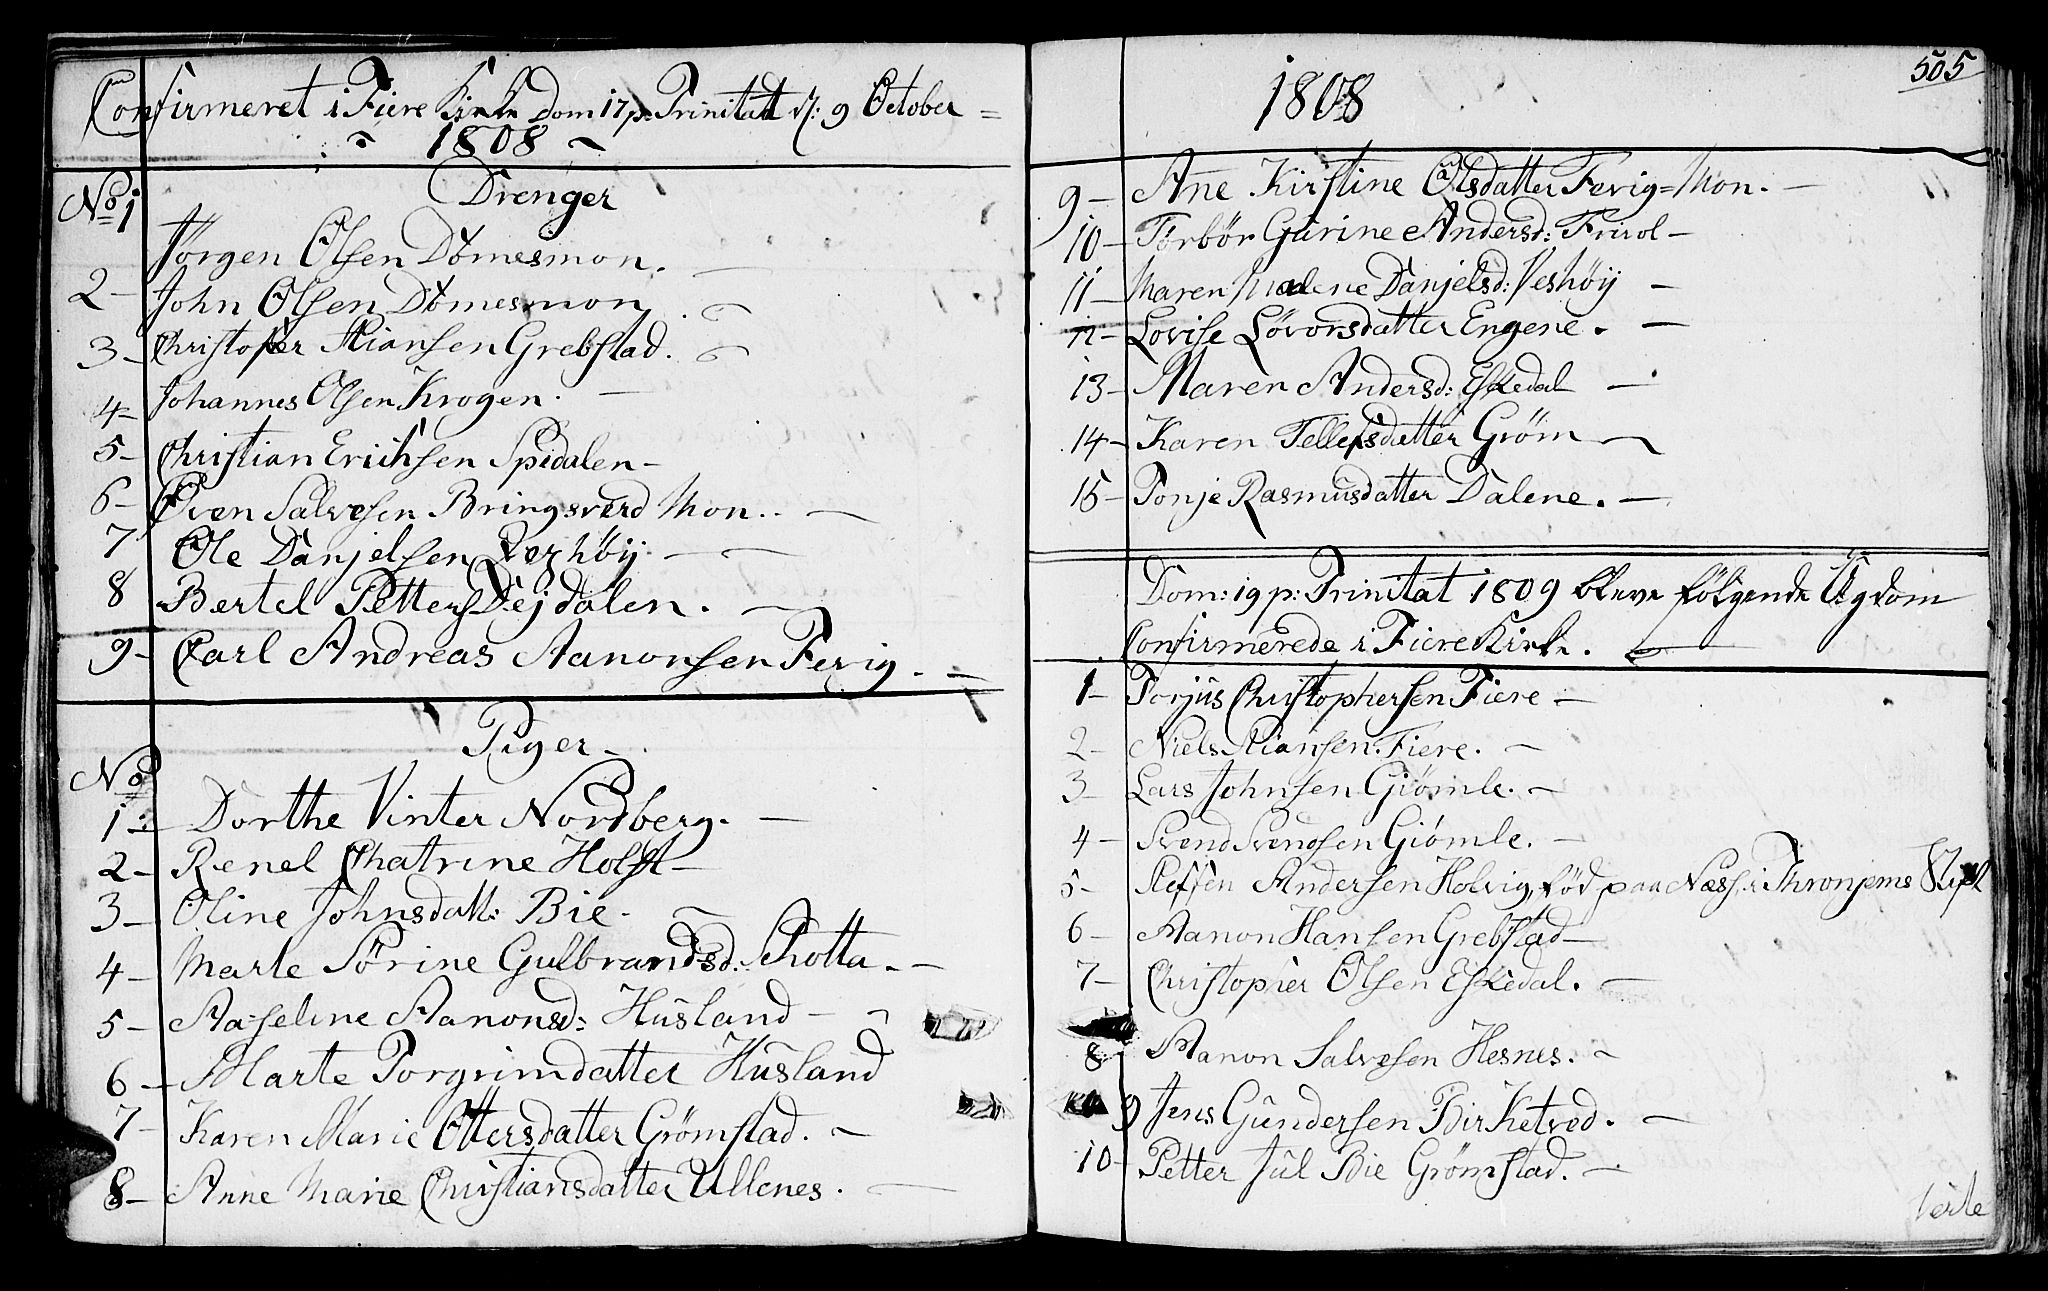 Confirmeret i Fiere Kirke Dom 17 p. Trinitat d: 9 October =
1808
Drenger
No 1 Jørgen Olsen Dømesmon.
2 - John Olsen Dømesmon
3 - Christopher Stiansen Grebstad.
4 - Johannes Olsen Krogen.
5 - Christian Erichsen Spedalen -
6 - Øven Salvesen Bringsverd Mon.
7 Ole Danjelsen
8 Bertel Petters Dejdalen.
9 - Carl Andreas Aanonsen Fevig.
Piger
No
1 - Dorthe Vinter Nordberg.
2 - Renel Chatrine Holst -
3 - Oline Johnsdatt: Bie -
4 - Marte Sørine Gulbrandsd: Skotta.
5 - Aaseline Aanonsd: Husland -
6 - Marte Torgrimdatter Husland
7 - Karen Marie Ottersdatter Grømstad.
8 - Anne Marie Christiansdatter Ullenes.
505
1808
9 - Ane Kirstine Olsdatter Fevig=Mon.
10 - Torbør Gurine Andersd:
11 - Maren Malene Danjelsd: Veshøy
12 - Lovise Løvorsdatter Engene.
13 - Maren Andersd: Eskedal
14 - Karen Tellefsdatter Grøm
15 - Tonje Rasmusdatter Dalene.
Dom: 19 p: Trinitat 1809 bleve følgende Ungdom
Confirmerede i Fiere Kirke.
1 - Torjus Christophersen Fiere -
2 - Niels Stiansen Fiere.
3 - Lars Johnsen Giømle.
4 - Svend Svendsen Giømle.
5 - Steffen Andersen Holvig, fød paa Næss i Thronjems Stift
6 - Aanon Hansen Grebstad -
7 - Christopher Olsen Eskedal.
8 - Aanon Salvesen Hesnes.
9 Jens Gundersen Birketved.
10 - Petter Jul Bie Grømstad.
Verte